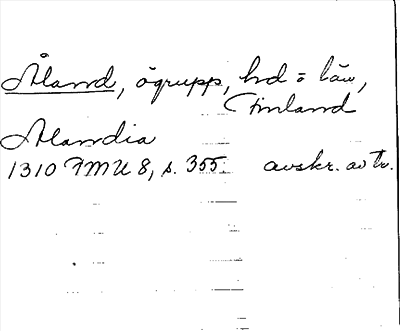 Åland, ögrupp, hd o län,
Finland
Alandia
1310 FMU 8, s. 355 avskr. av tr.